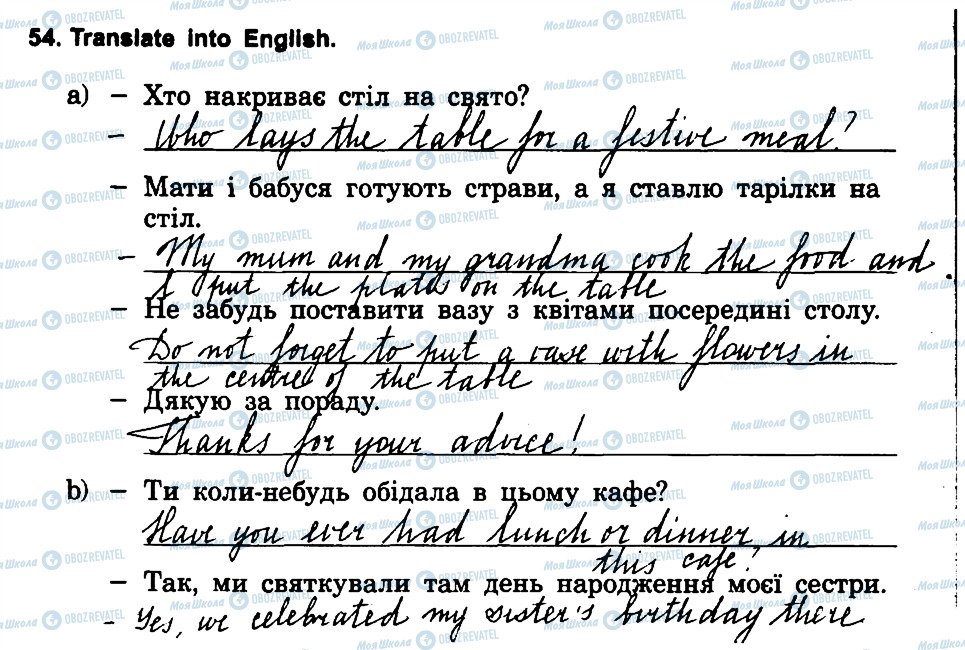 54. Translate into English.
a) – Хто накриває стіл на свято?
– Who lays the table for a festive meal?
– Мати і бабуся готують страви, а я ставлю тарілки на
стіл.
– My mum and my grandma cook the food and
I put the plates on the table
– Не забудь поставити вазу з квітами посередині столу.
Do not forget to put a vase with flowers in
the centre of the table
– Дякую за пораду.
Thanks for your advice!
b) – Ти коли-небудь обідала в цьому кафе?
Have you ever had lunch or dinner, in
this cafe?
– Так, ми святкували там день народження моєї сестри.
– Yes, we celebrated my sister's birthday there